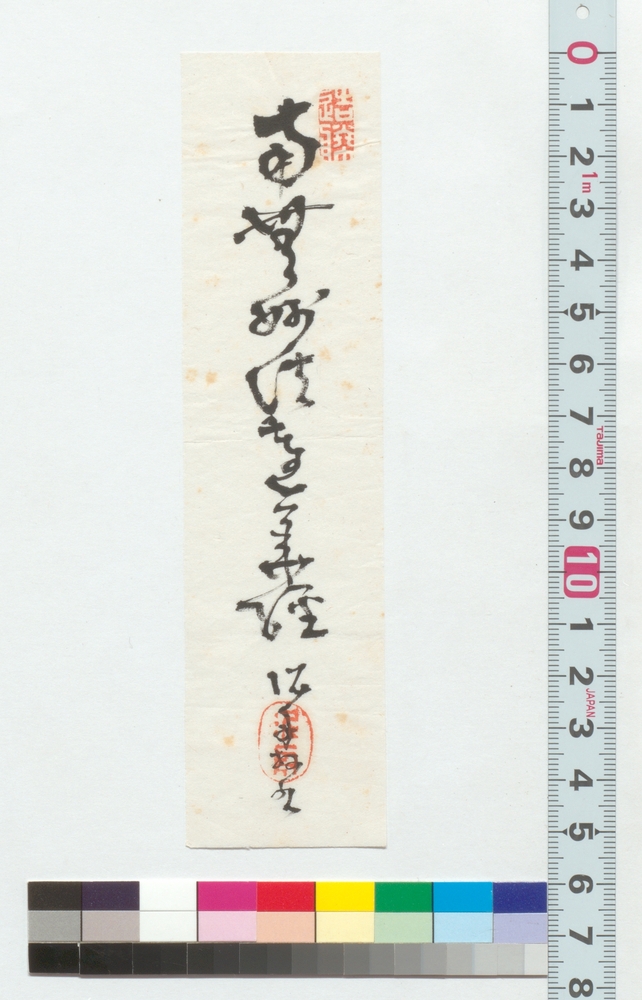 南無妙法蓮華経
0
1
2
1m
3
4
5
6
7
Tajima
8
9
10
1
2
JAPAN
3
4
5
6
7
8